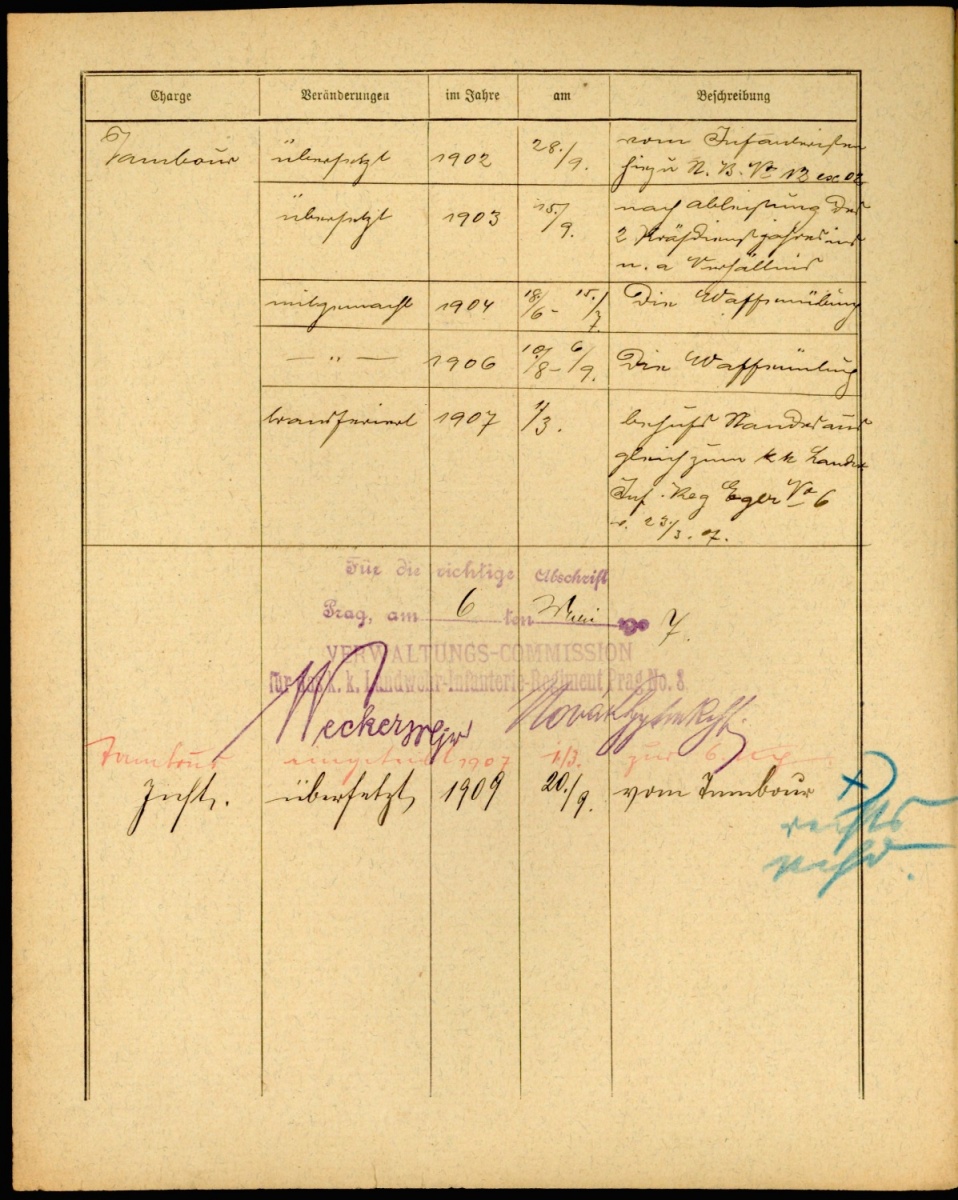 Charge Veränderungen im Jahre am Beschreibung
Tambour übersetzt 1902 28./9. vom Infanteristen
hiezu N. B. No 173 ex 02
übersetzt 1903 15./9. nach Ableistung des
2 Präsdienstjahres ins
n. a Verhältnis
mitgemacht 1904 18./6 - 15./7. Die Waffenübung
— " — 1906 10./8 - 6/9. Die Waffenübung
transferiert 1907 1/3. behufs Standesaus
gleich zum k k Landw
Inf. Reg Eger No 6
v. 23/3. 07.
Für die richtige Abschrift
Prag, am 6 ten Mai 190 7.
VERWALTUNGS-COMMISSION
für das k. k. Landwehr-Infanterie-Regiment Prag No. 8
Tambour eingeteilt 1907 1/3. zur 6
Inft. übersetzt 1909 20./9. vom Tambour
rechts